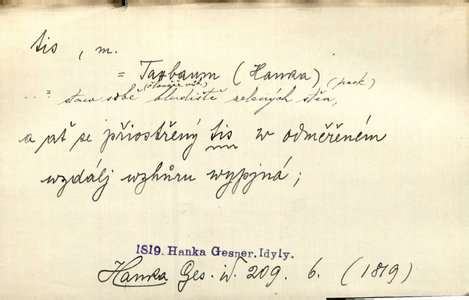 tis, m.
= Taxbaum (Hanka) (pack)
(člověče měj)
..? staw sobě bludiště zelených stěn,
a ať se přiostřený tis w odměřeném
wzdálj wzhůru wypjná;
1819. Hanka Gesner. Idyly.
Hanka Ges. id. 209. 6. (1819)